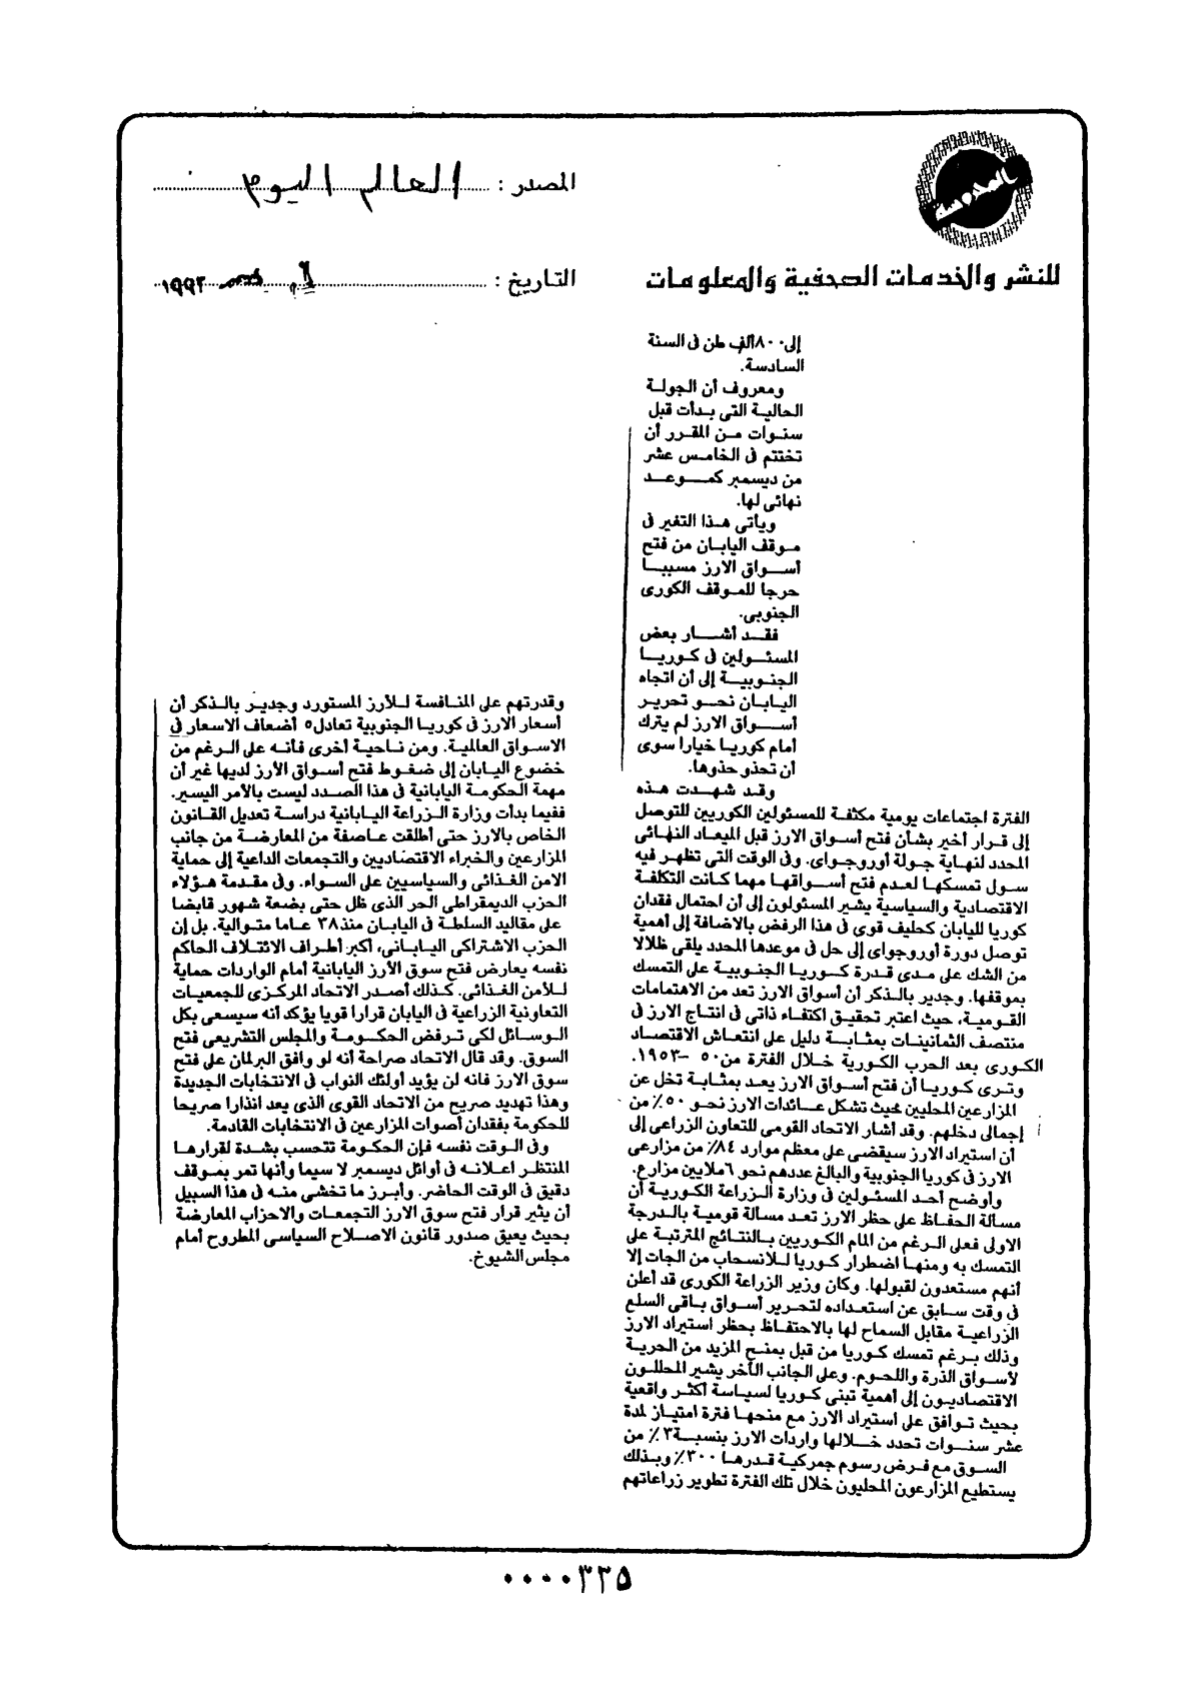 المصدر : العالم اليوم
للنشر والخدمات الصحفية والمعلومات
التاريخ : ديسمبر ١٩٩٣
إلى ٨٠٠ ألف طن فى السنة
السادسة.
ومعروف أن الجولة
الحالية التى بدأت قبل
سنوات من المقرر أن
تختتم فى الخامس عشر
من ديسمبر كموعد
نهائى لها.
ويأتى هذا التغير فى
موقف اليابان من فتح
أسواق الارز مسببا
حرجا للموقف الكورى
الجنوبى.
فقد أشار بعض
المسئولين فى كوريا
الجنوبية إلى أن اتجاه
اليابان نحو تحرير
أسواق الارز لم يترك
أمام كوريا خيارا سوى
أن تحذو حذوها.
وقد شهدت هذه
الفترة اجتماعات يومية مكثفة للمسئولين الكوريين للتوصل
إلى قرار أخير بشأن فتح أسواق الارز قبل الميعاد النهائى
المحدد لنهاية جولة أوروجواى. وفى الوقت التى تظهر فيه
سول تمسكها لعدم فتح أسواقها مهما كانت التكلفة
الاقتصادية والسياسية يشير المسئولون إلى أن احتمال فقدان
كوريا لليابان كحليف قوى فى هذا الرفض بالاضافة إلى أهمية
توصل دورة أوروجواى إلى حل فى موعدها المحدد يلقى ظلالا
من الشك على مدى قدرة كوريا الجنوبية على التمسك
بموقفها. وجدير بالذكر أن أسواق الارز تعد من الاهتمامات
القومية، حيث اعتبر تحقيق اكتفاء ذاتى فى انتاج الارز فى
منتصف الثمانينات بمثابة دليل على انتعاش الاقتصاد
الكورى بعد الحرب الكورية خلال الفترة من ٥٠ - ١٩٥٣.
وترى كوريا أن فتح أسواق الارز يعد بمثابة تخل عن
المزارعين المحليين بحيث تشكل عائدات الارز نحو ٥٠٪ من
إجمالى دخلهم. وقد أشار الاتحاد القومى للتعاون الزراعى إلى
أن استيراد الارز سيقضى على معظم موارد ٨٤٪ من مزارعى
الارز فى كوريا الجنوبية والبالغ عددهم نحو ٦ ملايين مزارع.
وأوضح أحد المسئولين فى وزارة الزراعة الكورية أن
مسألة الحفاظ على حظر الارز تعد مسالة قومية بالدرجة
الاولى فعلى الرغم من المام الكوريين بالنتائج المترتبة على
التمسك به ومنها اضطرار كوريا للانسحاب من الجات إلا
أنهم مستعدون لقبولها. وكان وزير الزراعة الكورى قد أعلن
فى وقت سابق عن استعداده لتحرير أسواق باقى السلع
الزراعية مقابل السماح لها بالاحتفاظ بحظر استيراد الارز
وذلك برغم تمسك كوريا من قبل بمنح المزيد من الحرية
لأسواق الذرة واللحوم. وعلى الجانب الأخر يشير المحللون
الاقتصاديون إلى أهمية تبنى كوريا لسياسة أكثر واقعية
بحيث توافق على استيراد الارز مع منحها فترة امتياز لمدة
عشر سنوات تحدد خلالها واردات الارز بنسبة ٣٪ من
السوق مع فرض رسوم جمركية قدرها ٣٠٠٪ وبذلك
يستطيع المزارعون المحليون خلال تلك الفترة تطوير زراعاتهم
وقدرتهم على المنافسة للأرز المستورد وجدير بالذكر أن
أسعار الارز فى كوريا الجنوبية تعادل ٥ أضعاف الاسعار فى
الاسواق العالمية. ومن ناحية أخرى فانه على الرغم من
خضوع اليابان إلى ضغوط فتح أسواق الأرز لديها غير أن
مهمة الحكومة اليابانية فى هذا الصدد ليست بالأمر اليسير.
ففيما بدأت وزارة الزراعة اليابانية دراسة تعديل القانون
الخاص بالارز حتى أطلقت عاصفة من المعارضة من جانب
المزارعين والخبراء الاقتصاديين والتجمعات الداعية إلى حماية
الامن الغذائى والسياسيين على السواء. وفى مقدمة هؤلاء
الحزب الديمقراطى الحر الذى ظل حتى بضعة شهور قابضا
على مقاليد السلطة فى اليابان منذ ٣٨ عاما متوالية. بل إن
الحزب الاشتراكى اليابانى، أكبر أطراف الائتلاف الحاكم
نفسه يعارض فتح سوق الأرز اليابانية أمام الواردات حماية
للأمن الغذائى. كذلك أصدر الاتحاد المركزى للجمعيات
التعاونية الزراعية فى اليابان قرارا قويا يؤكد أنه سيسعى بكل
الوسائل لكى ترفض الحكومة والمجلس التشريعى فتح
السوق. وقد قال الاتحاد صراحة أنه لو وافق البرلمان على فتح
سوق الارز فانه لن يؤيد أولئك النواب فى الانتخابات الجديدة
وهذا تهديد صريح من الاتحاد القوى الذى يعد انذارا صريحا
للحكومة بفقدان أصوات المزارعين فى الانتخابات القادمة.
وفى الوقت نفسه فإن الحكومة تتحسب بشدة لقرارها
المنتظر اعلانه فى أوائل ديسمبر لا سيما وأنها تمر بموقف
دقيق فى الوقت الحاضر. وأبرز ما تخشى منه فى هذا السبيل
أن يثير قرار فتح سوق الارز التجمعات والاحزاب المعارضة
بحيث يعيق صدور قانون الاصلاح السياسى المطروح أمام
مجلس الشيوخ.
٠٠٠٠٣٣٥